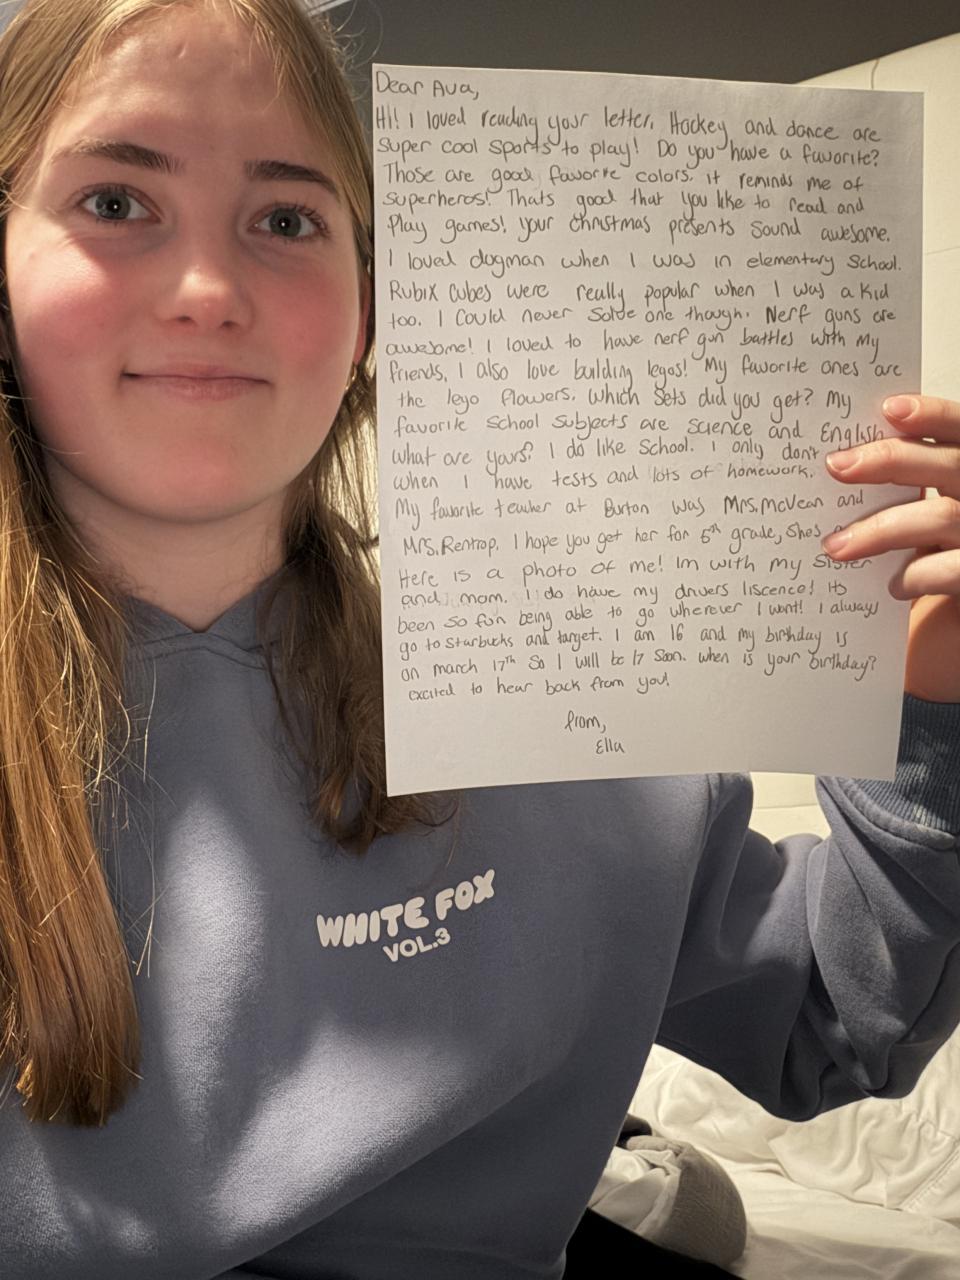 Dear Ava,
Hi! I loved reading your letter. Hockey and dance are
super cool sports to play! Do you have a favorite?
Those are good favorite colors. it reminds me of
superheros! Thats good that you like to read and
Play games! your christmas presents sound awesome.
I loved dogman when I was in elementary school.
Rubix cubes were really popular when I was a kid
too. I could never solve one though. Nerf guns are
awesome! I loved to have nerf gun battles with my
friends. I also love building legos! My favorite ones are
the lego flowers. which sets did you get? My
favorite school subjects are science and English
what are yours? I do like school. I only don't
when I have tests and lots of homework.
My favorite teacher at Burton was Mrs. McVean and
Mrs. Rentrop. I hope you get her for 5th grade, shes
Here is a photo of me! Im with my sister
and mom. I do have my drivers liscence! its
been so fun being able to go wherever I want! I always
go to Starbucks and target. I am 16 and my birthday is
on march 17th so I will be 17 soon. when is your birthday?
excited to hear back from you!
from,
Ella
WHITE FOX
VOL.3